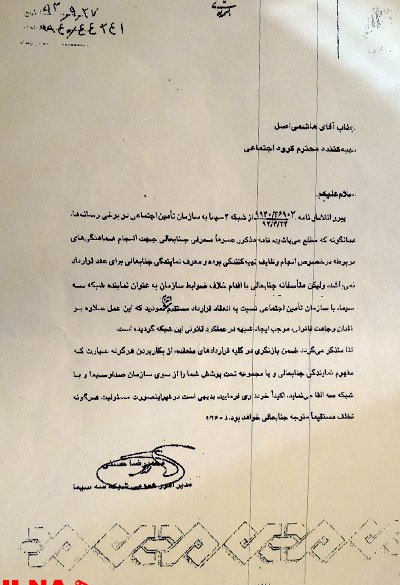 ۹۳/۹/۲۷
۹۴۰/۵۴۴۲۴۱
جناب آقای هاشمی اصل
تهیه‌کننده محترم گروه اجتماعی
سلام علیکم
پیرو انتشار نامه ۹۹۴۰/۲۶۹۰۲ از شبکه ۳ سیما به سازمان تأمین اجتماعی در برخی رسانه‌ها،
۹۲/۴/۲۴
همانگونه که مطلع می‌باشید، نامه مذکور صرفاً معرفی جنابعالی جهت انجام هماهنگی‌های
مربوطه در خصوص انجام وظایف تهیه‌کنندگی بوده و معرف نمایندگی جنابعالی برای عقد قرارداد
نمی‌باشد، ولیکن متأسفانه جنابعالی با اقدام خلاف ضوابط سازمان به عنوان نماینده شبکه سه
سیما، با سازمان تأمین اجتماعی نسبت به انعقاد قرارداد مستقیم نمودید که این عمل علاوه بر
فقدان وجاهت قانونی، موجب ایجاد شبهه در عملکرد قانونی این شبکه گردیده است.
لذا متذکر می‌گردد، ضمن بازنگری در کلیه قراردادهای منعقده، از بکاربردن هرگونه عبارت که
مفهوم نمایندگی جنابعالی و یا مجموعه تحت پوشش شما را از سوی سازمان صداوسیما و یا
شبکه سه القا می‌نماید، اکیداً خودداری فرمایید، بدیهی است در غیراینصورت مسئولیت هرگونه
تخلف مستقیماً متوجه جنابعالی خواهد بود.
مدیر امور عمومی شبکه سه سیما
ILNA